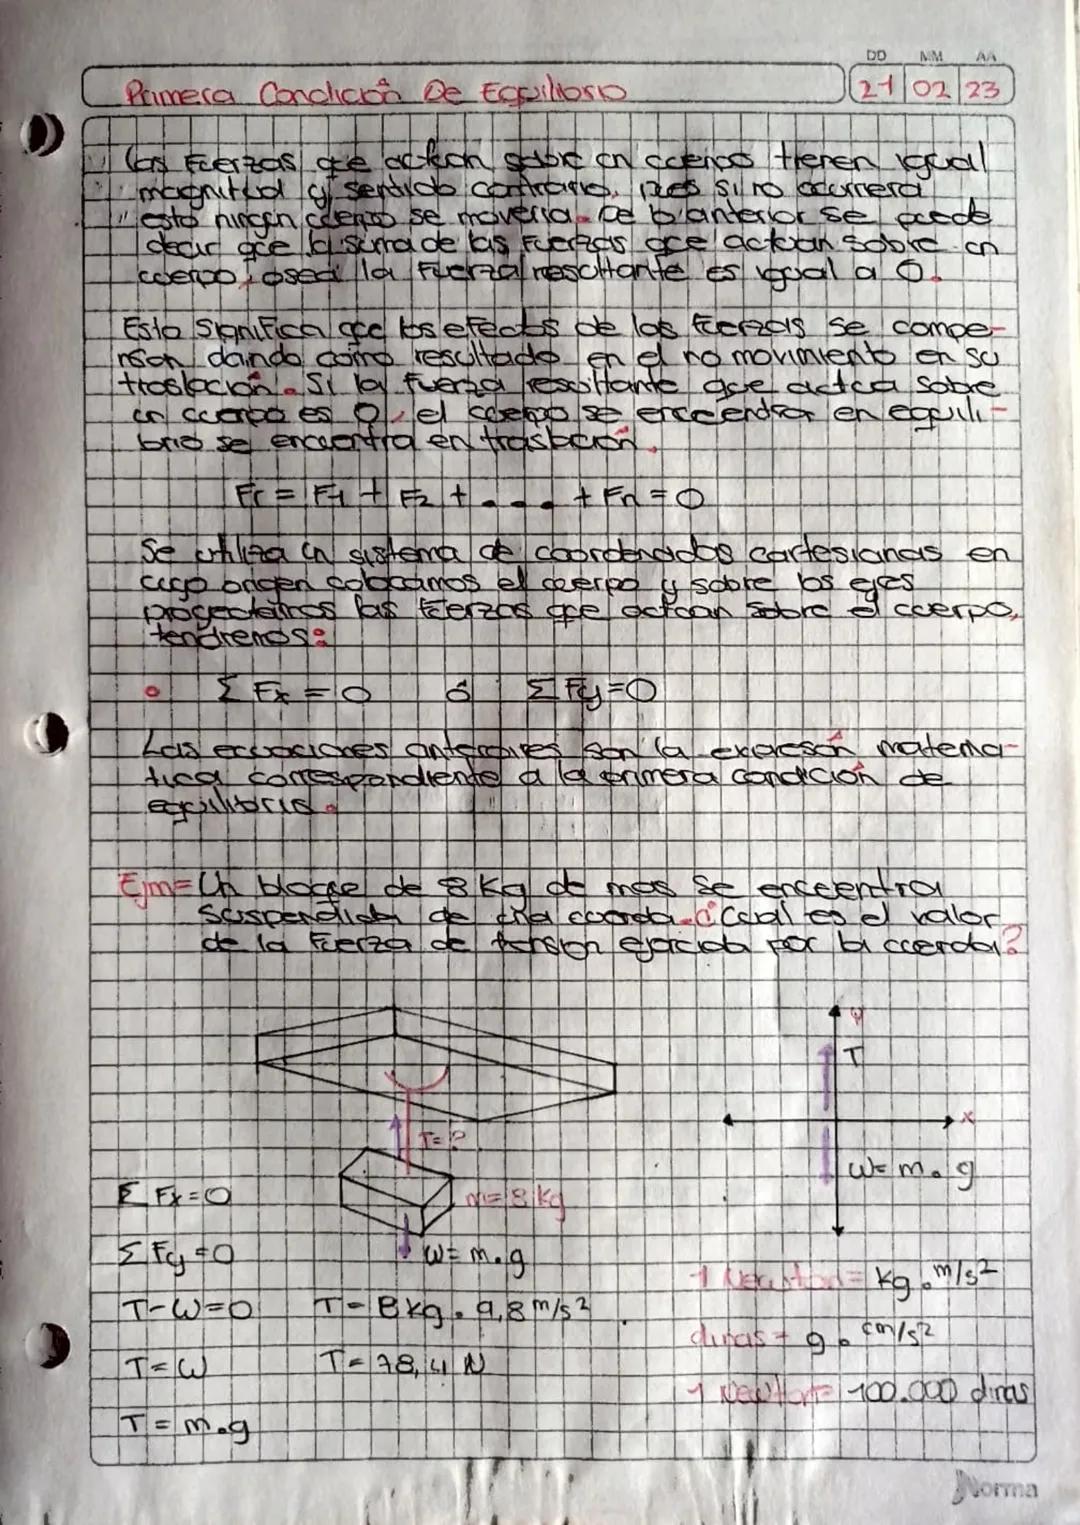 DD MM AA
Primera Condición De Equilibrio 21 02 23
Las Fuerzas que actuan sobre un cuerpo tienen igual
magnitud y sentido contrario. Pues si no ocurriera
esto ningun cuerpo se moveria. De lo anterior se puede
decir que la suma de las Fuerzas que actuan sobre un
cuerpo, osea la Fuerza resultante es igual a 0.
Esto Significa que los efectos de las Fuerzas se compe-
nsan dando como resultado en el no movimiento en su
traslación. Si la fuerza resultante que actua sobre
un cuerpo es 0, el cuerpo se encuentra en equili-
brio se encuentra en traslación.
Fr = F1 + F2 + . . . . + Fn = 0
Se utiliza un sistema de coordenadas cartesianas en
cuyo origen colocamos el cuerpo y sobre los ejes
las Fuerzas que actuan sobre el cuerpo,
tendremos:
• Σ Fx = 0 ó Σ Fy = 0
Las ecuaciones anteriores son la expresión matema-
tica correspondiente a la primera condición de
equilibrio.
Ejm= Un bloque de 8 Kg de mas se encuentra
suspendido de una cuerda. ¿Cual es el valor
de la Fuerza de tension ejercida por la cuerda?
y
T
x
T=?
W= m.g
m= 8 kg
Σ Fx=0
Σ Fy=0
W= m.g
1 Newton= kg . m/s²
T-W=0 T= 8kg . 9,8 m/s²
dinas= g . cm/s²
T=W T= 78,4 N
1 Newton= 100.000 dinas
T= m.g
Norma